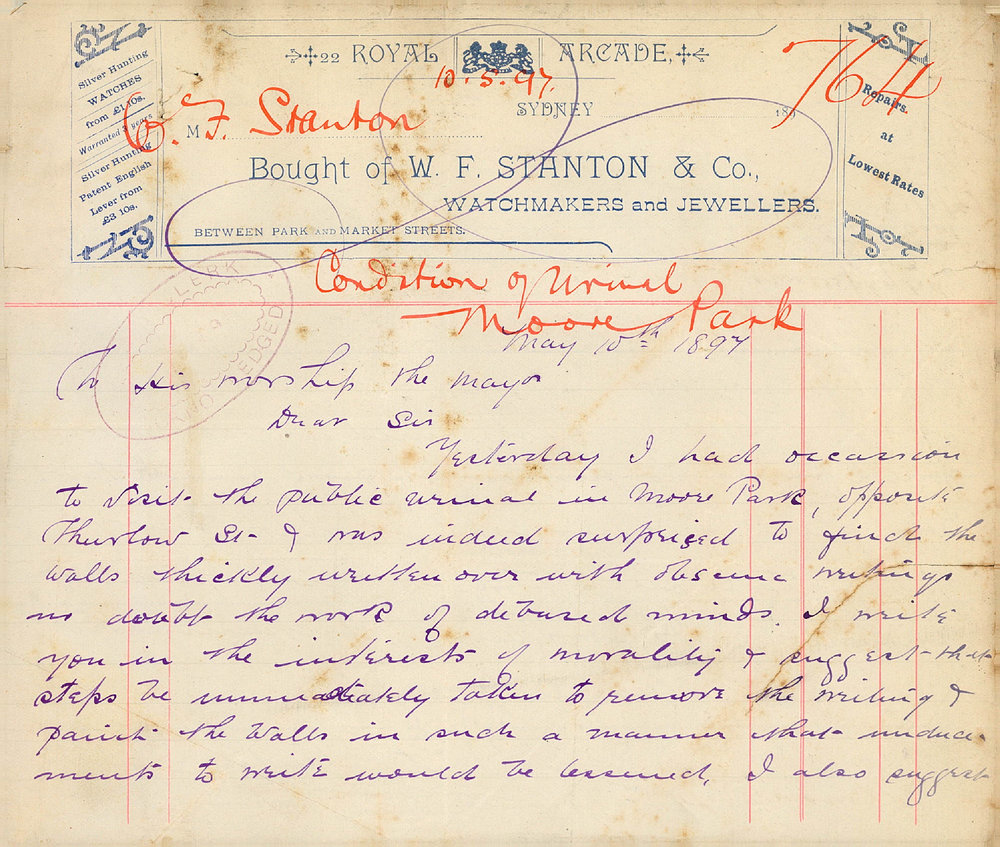 Silver Hunting
WATCHES
from £1 10s.
Warranted 3 years
Silver Hunting
Patent English
Lever from
£3 10s.
22 ROYAL ARCADE,
10.5.97.
SYDNEY 189
764
M F. Stanton
Bought of W. F. STANTON & Co.,
WATCHMAKERS and JEWELLERS.
BETWEEN PARK AND MARKET STREETS.
Repairs
at
Lowest Rates
Condition of Urinal
Moore Park
CLERK
May 10th 1897
To His worship the mayor
Dear Sir
Yesterday I had occassion
to visit the public urinal in Moore Park, opposite
Thurlow St & was indeed surprised to find the
walls thickly written over with obscene writings
no doubt the work of debased minds. I write
you in the interests of morality & suggest that
steps be immediately taken to remove the writing &
paint the walls in such a manner that induce-
ments to write would be lessened. I also suggest